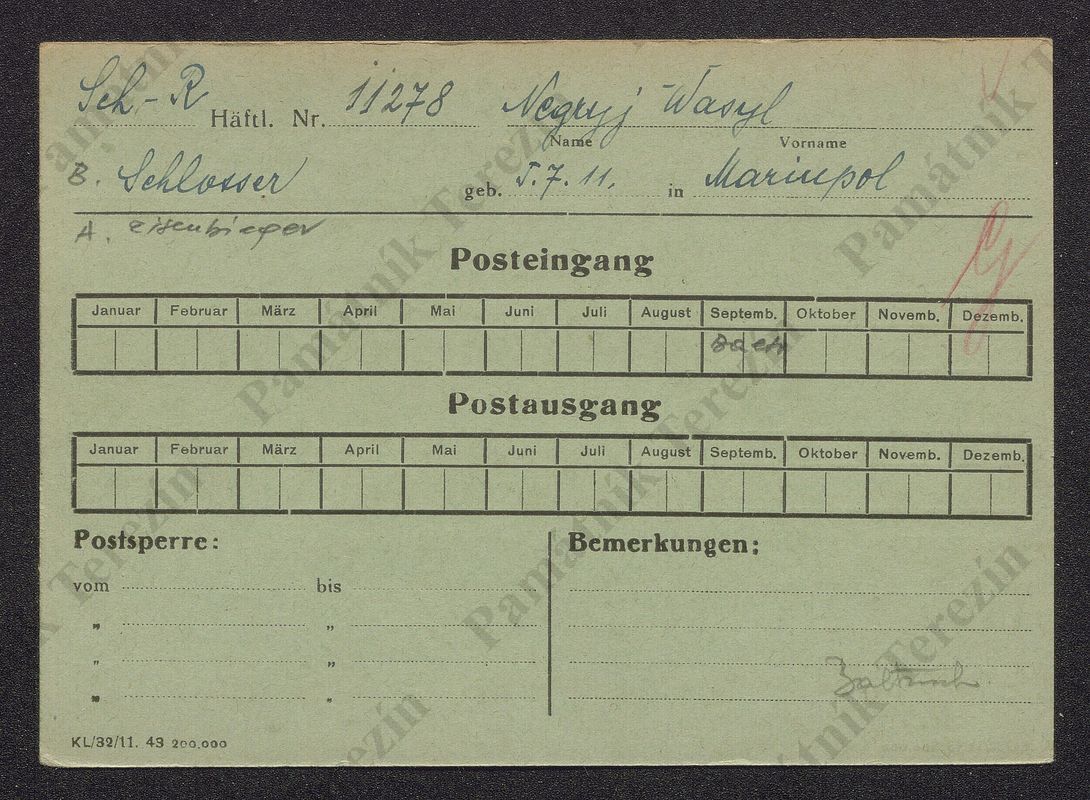 Sch.-R Häftl. Nr. 11278 Negryj Wasyl
Name Vorname
B. Schlosser geb. 5.7.11. in Mariupol
A. Eisenbieger
Posteingang
Januar Februar März April Mai Juni Juli August Septemb. Oktober Novemb. Dezemb.
Postausgang
Januar Februar März April Mai Juni Juli August Septemb. Oktober Novemb. Dezemb.
Postsperre: Bemerkungen:
vom bis
" "
" "
" "
KL/32/11. 43 200.000
Památník Terezín